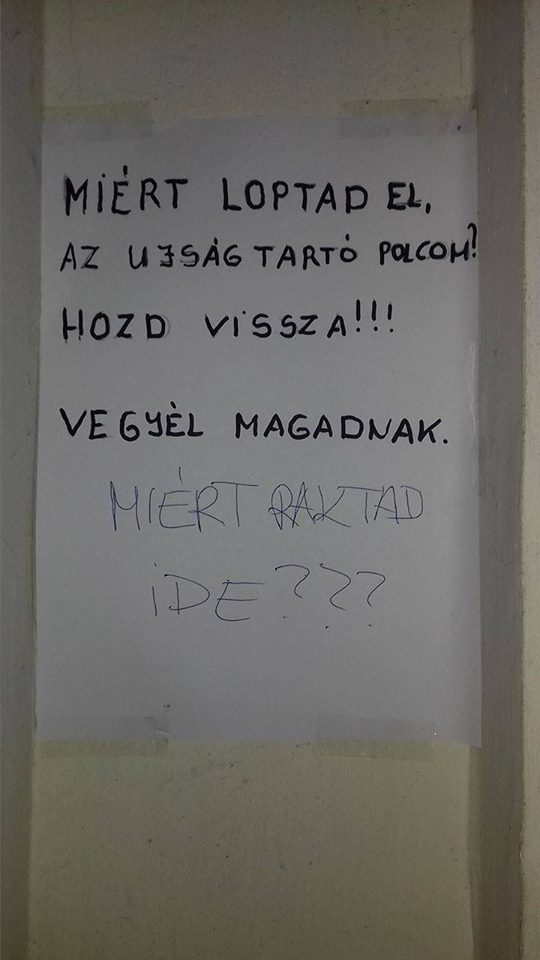 MIÉRT LOPTAD EL,
AZ UJSÁG TARTÓ POLCOM?
HOZD VISSZA!!!
VEGYÈL MAGADNAK.
MIÉRT RAKTAD
IDE???